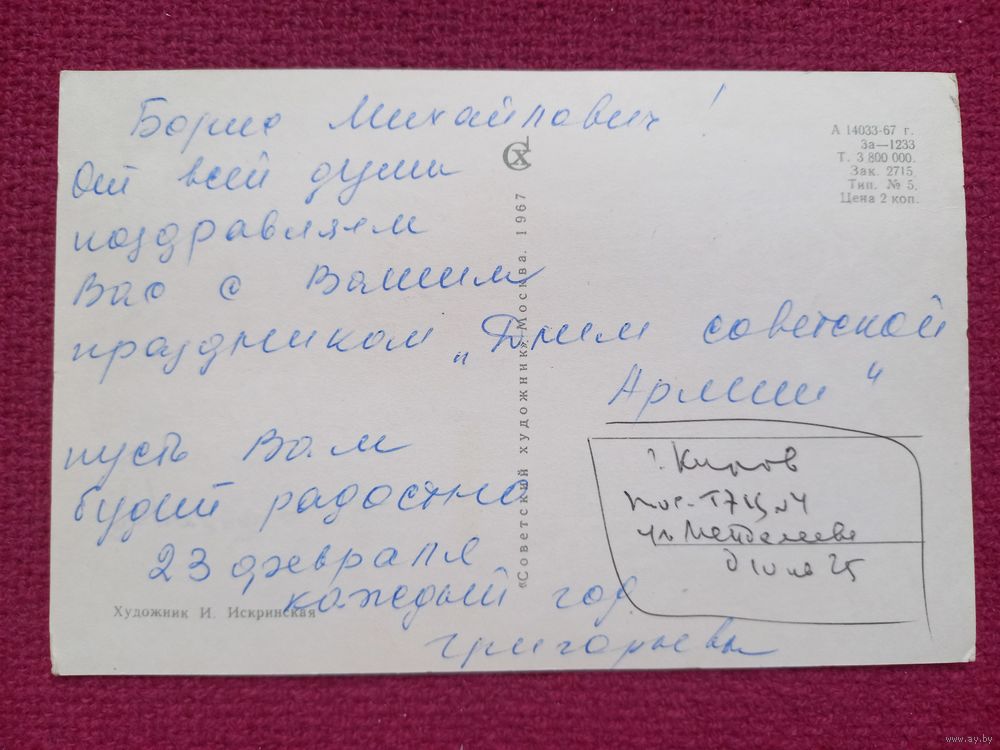 Борис Михайлович!
От всей души
поздравляем
Вас с Вашим
праздником „Днем советской
Армии“
пусть Вам
будет радостно
23 февраля
каждый год
Григорьевы
СХ
А 14033-67 г.
За—1233
Т. 3 800 000.
Зак. 2715.
Тип. № 5.
Цена 2 коп.
«Советский художник». Москва. 1967
г. Киров
пос.
ул. Менделеева
Художник И. Искринская
www.ay.by